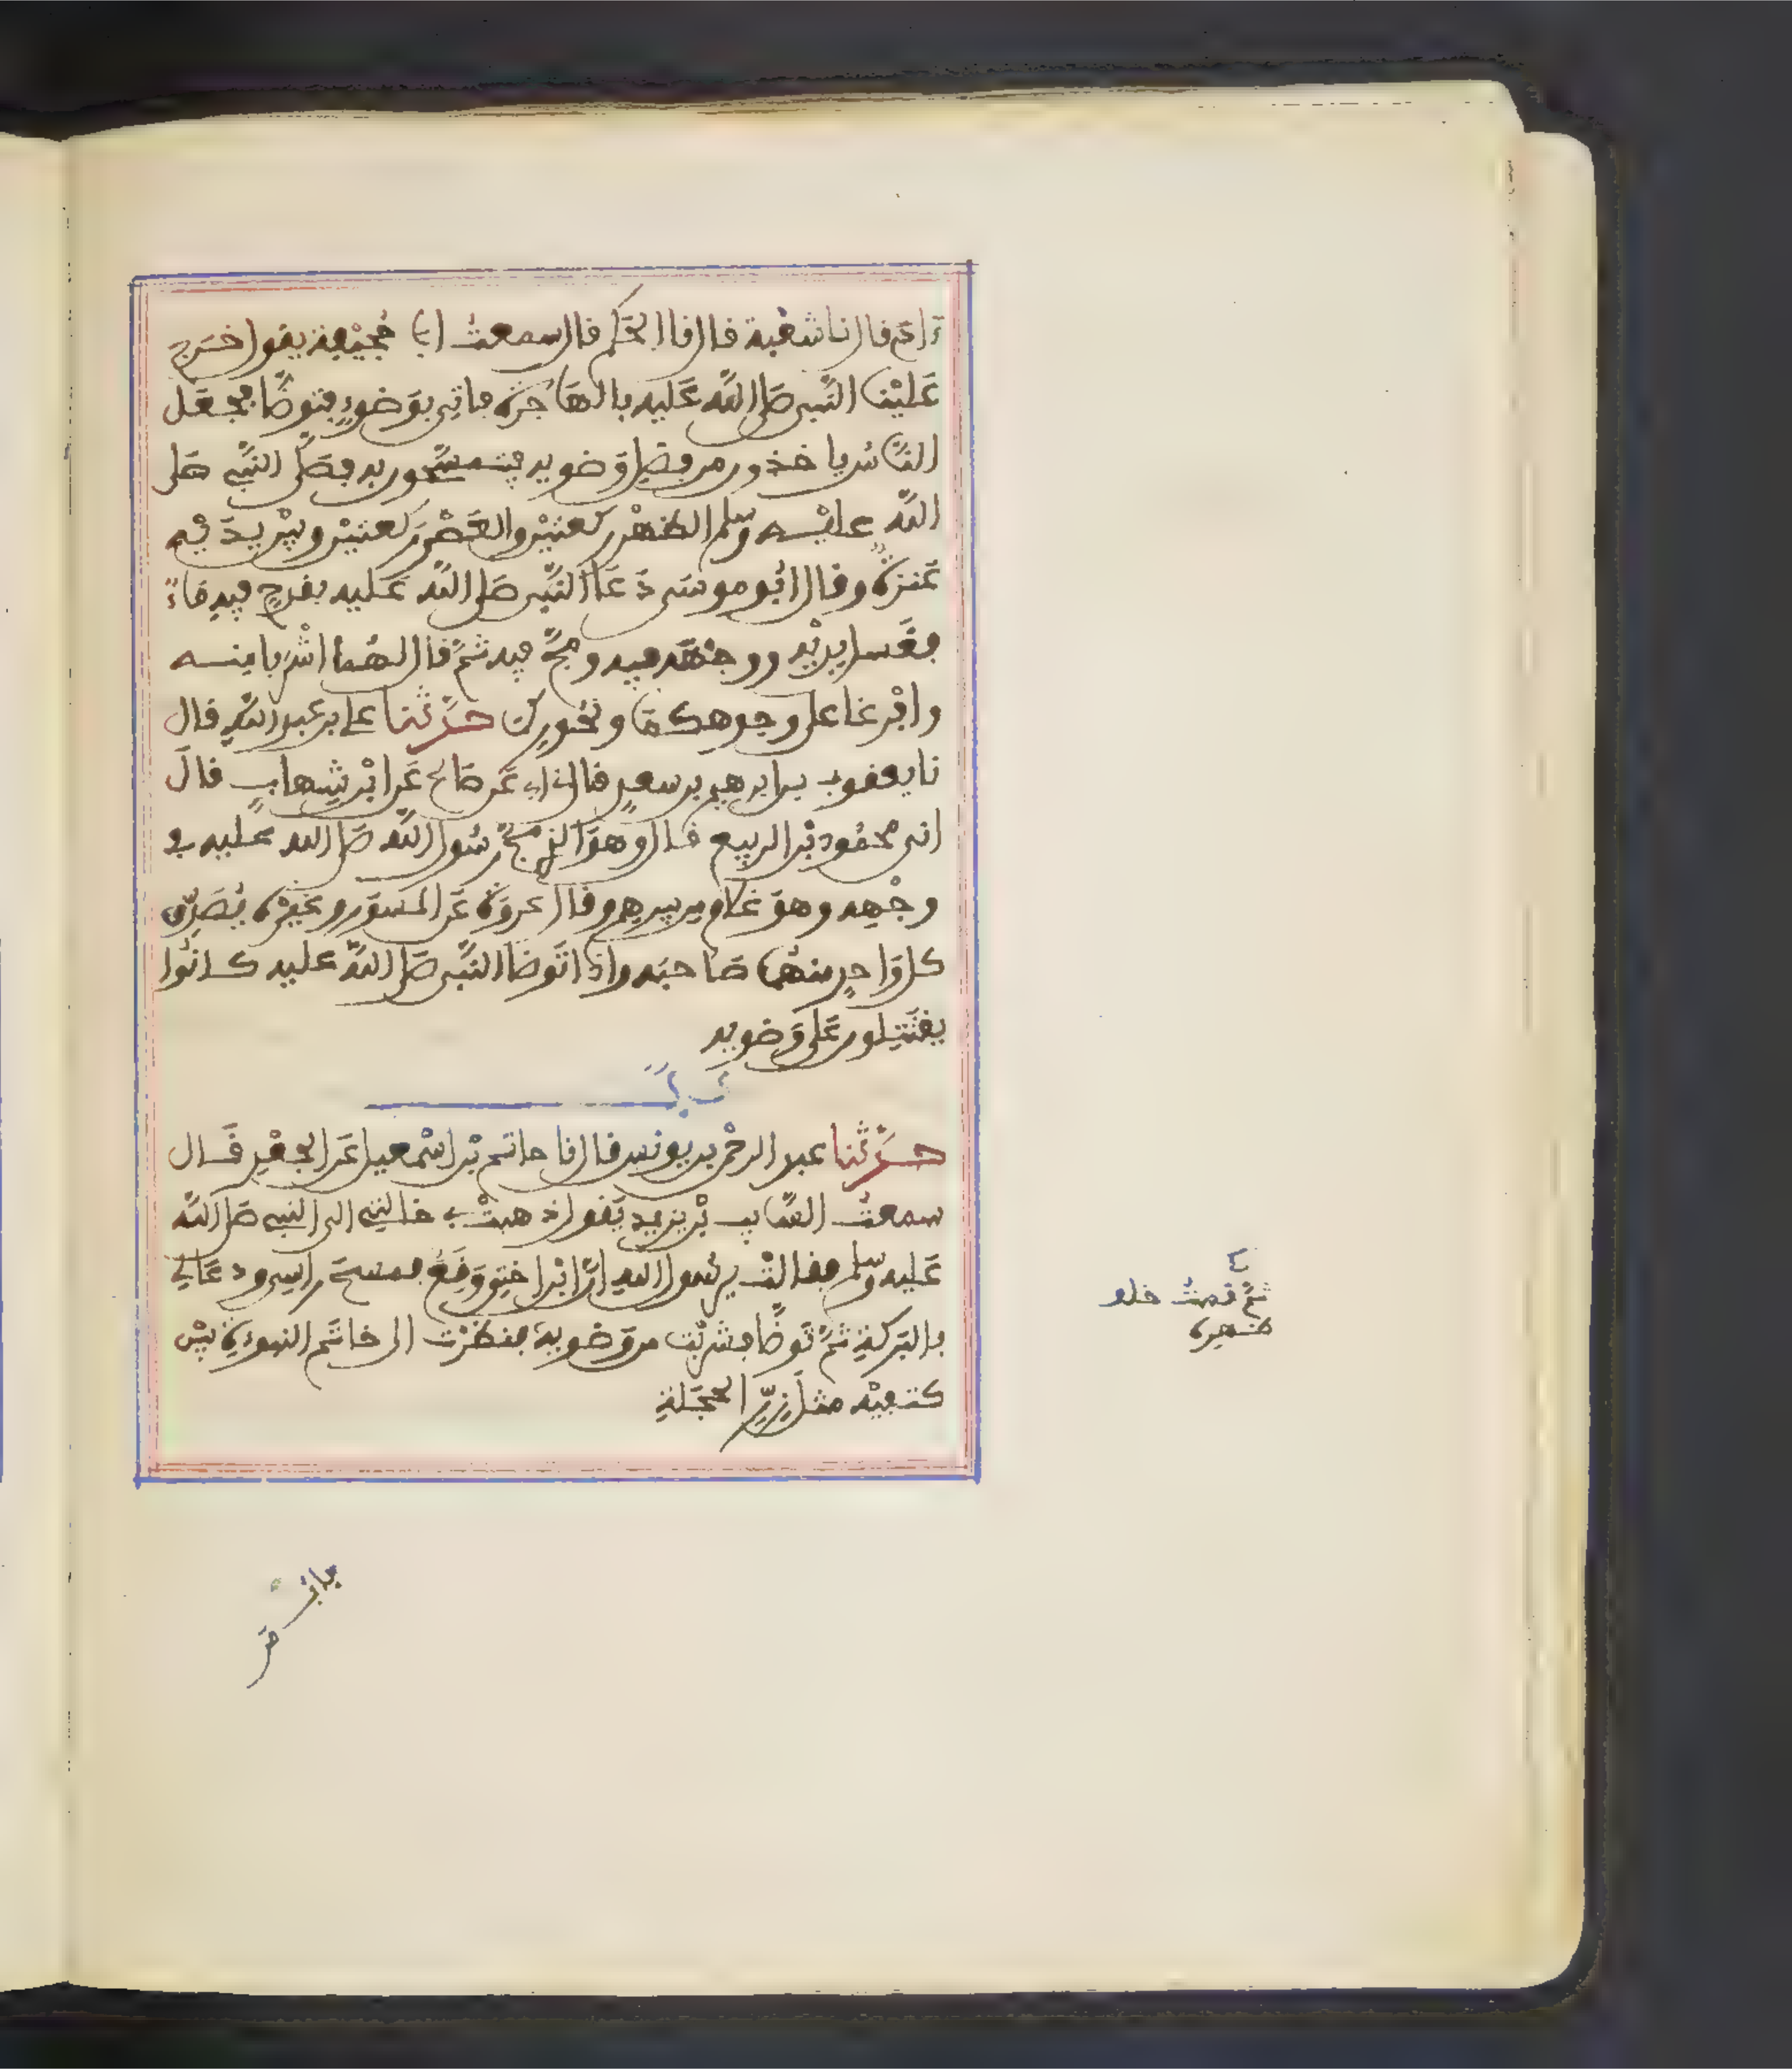 ءادم قال نا شعبة قال نا الحكم قال سمعت ابا جحيفة يقول خرج
علينا النبي صلى الله عليه بالهاجرة فاتي بوضوء فتوضا فجعل
الناس ياخذون من فضل وضويه فيتمسحون به فصلى النبي صلى
الله عليه وسلم الظهر ركعتين والعصر ركعتين وبين يديه
عنزة وقال ابو موسى دعا النبي صلى الله عليه بقدح فيه ماء
فغسل يديه ووجهه فيه ومج فيه ثم قال لهما اشربا منه
وافرغا على وجوهكما ونحوركما حدثنا علي بن عبد الله قال
نا يعقوب بن ابرهيم بن سعد قال نا ابي عن صالح عن ابن شهاب قال
اني محمود بن الربيع قال وهو الذي مج رسول الله صلى الله عليه في
وجهه وهو غلام من بيرهم وقال عروة عن المسور وغيره يصدق
كل واحد منهما صاحبه واذا توضا النبي صلى الله عليه كانوا
يقتتلون على وضويه
باب
حدثنا عبد الرحمن بن يونس قال نا حاتم بن اسمعيل عن الجعد قال
سمعت السايب بن يزيد يقول ذهبت بي خالتي الى النبي صلى الله
عليه وسلم فقالت يرسول الله ان ابن اختي وقع فمسح راسي ودعا لي
بالبركة ثم توضا فشربت من وضويه فنظرت الى خاتم النبوءة بين
كتفيه مثل زر الحجلة
ثم قمت خلف
ظهره